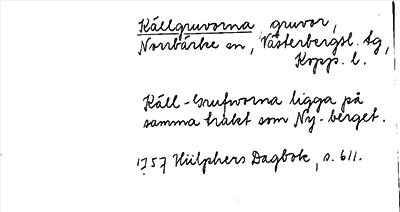 Källgruvorna, gruvor,
Norrbärke sn, Västerbergsl. tg,
Kopp. l.
Käll-Grufworna ligga på
samma trakt som Ny-berget.
1757 Hülphers Dagbok, s. 611.